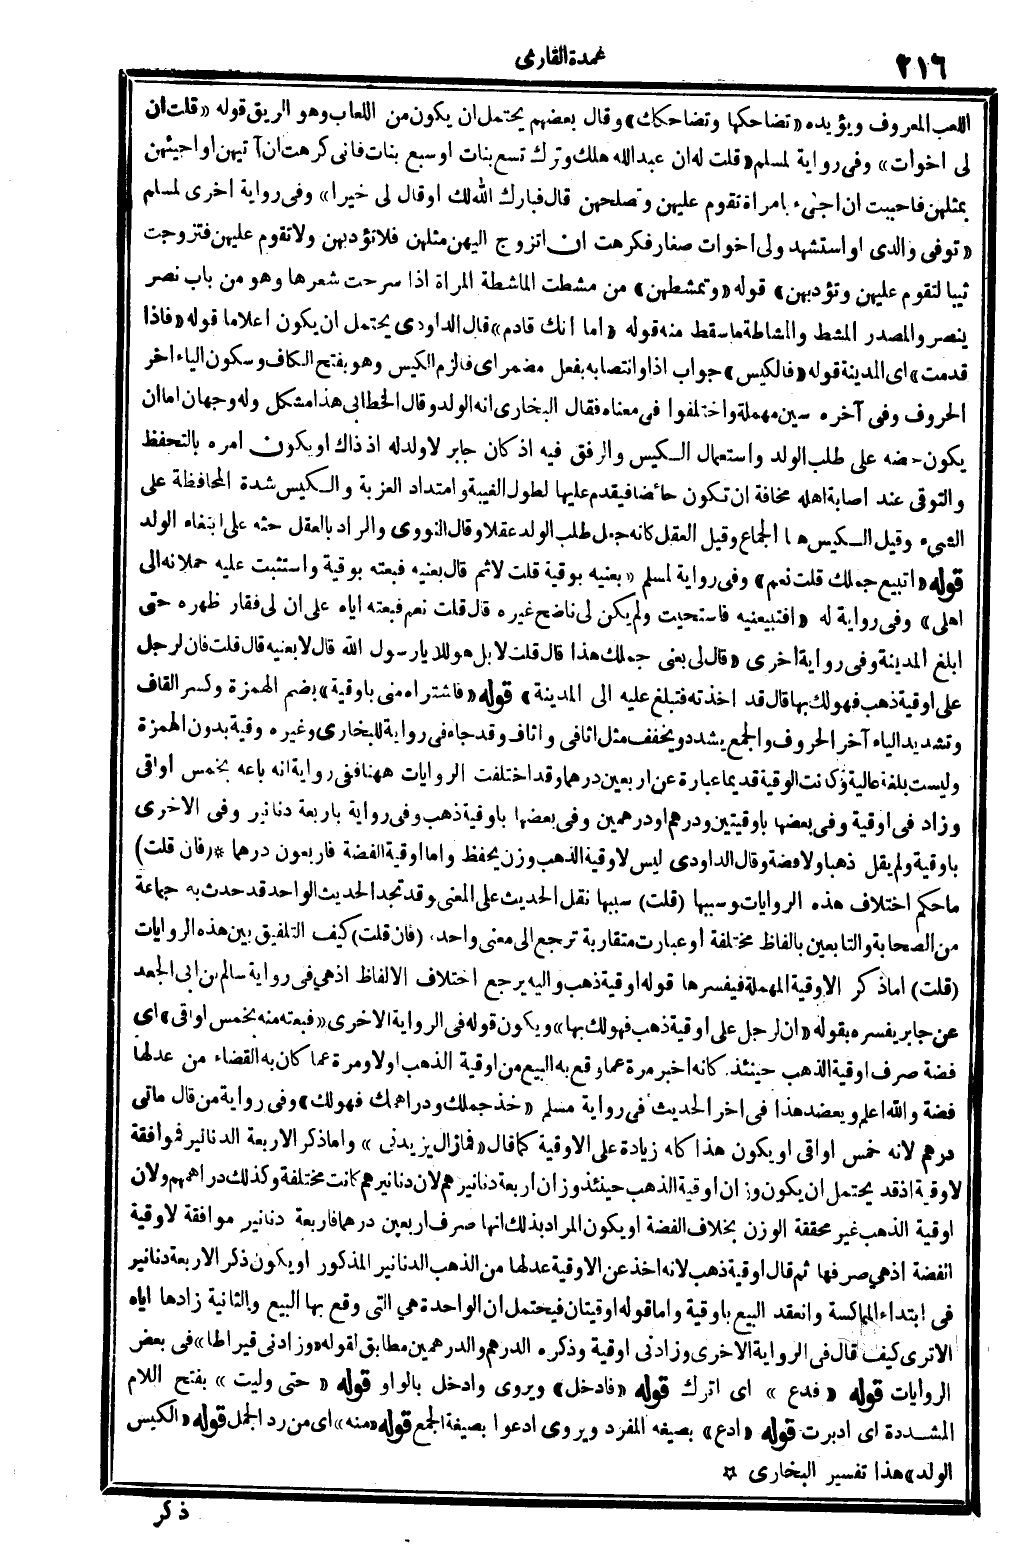 ٢١٦
عمدة القارئ
اللعب المعروف ويؤيده «تضاحكها وتضاحكك» وقال بعضهم يحتمل ان يكون من اللعاب وهو الريق قوله «قلت ان
لى اخوات» وفى رواية لمسلم «قلت له ان عبدالله هلك وترك تسع بنات او سبع بنات فانى كرهت ان آتيهن او اجيئهن
بمثلهن فاحببت ان اجئ بامراة تقوم عليهن وتصلحهن قال فبارك الله لك او قال لى خيرا» وفى رواية اخرى لمسلم
«توفى والدى او استشهد ولى اخوات صغار فكرهت ان اتزوج اليهن مثلهن فلا تؤدبهن ولا تقوم عليهن فتزوجت
ثيبا لتقوم عليهن وتؤدبهن» قوله «وتمشطهن» من مشطت الماشطة المراة اذا سرحت شعرها وهو من باب نصر
ينصر والمصدر المشط والمشاطة ما سقط منه قوله «اما انك قادم» قال الداودى يحتمل ان يكون اعلاما قوله «فاذا
قدمت» اى المدينة قوله «فالكيس» جواب اذا وانتصابه بفعل مضمر اى فالزم الكيس وهو بفتح الكاف وسكون الياء اخر
الحروف وفى آخره سين مهملة واختلفوا فى معناه فقال البخارى انه الولد وقال الخطابى هذا مشكل وله وجهان اما ان
يكون حضه على طلب الولد واستعمال الكيس والرفق فيه اذ كان جابر لا ولد له اذ ذاك او يكون امره بالتحفظ
والتوقى عند اصابة اهله مخافة ان تكون حائضا فيقدم عليها لطول الغيبة وامتداد العزبة والكيس شدة المحافظة على
الشىء وقيل الكيس هنا الجماع وقيل العقل كانه جعل طلب الولد عقلا وقال النووى والراد بالعقل حثه على ابتغاء الولد
قوله «اتبيع جملك قلت نعم» وفى رواية لمسلم «بعنيه بوقية قلت لا ثم قال بعنيه فبعته بوقية واستثبت عليه حملانه الى
اهلى» وفى رواية له «افتبيعنيه فاستحييت ولم يكن لى ناضح غيره قال قلت نعم فبعته اياه على ان لى فقار ظهره حتى
ابلغ المدينة وفى رواية اخرى «قال لى بعنى جملك هذا قال قلت لا بل هو لك يا رسول الله قال لا بعنيه قال قلت فان لرجل
على اوقية ذهب فهو لك بها قال قد اخذته فتبلغ عليه الى المدينة» قوله «فاشتراه منى باوقية» بضم الهمزة وكسر القاف
وتشديد الياء آخر الحروف والجمع يشدد ويخفف مثل اثافى واثاف وقد جاء فى رواية للبخارى وغيره وقية بدون الهمزة
وليست بلغة عالية وكانت الوقية قديما عبارة عن اربعين درهما وقد اختلفت الروايات ههنا ففى رواية انه باعه بخمس أواقى
وزاد فى اوقية وفى بعضها باوقيتين ودرهم او درهمين وفى بعضها باوقية ذهب وفى رواية باربعة دنانير وفى الاخرى
باوقية ولم يقل ذهبا ولا فضة وقال الداودى ليس لاوقية الذهب وزن يحفظ واما اوقية الفضة فاربعون درهما * (فان قلت)
ما حكم اختلاف هذه الروايات وسببها (قلت) سببها نقل الحديث على المعنى وقد تجد الحديث الواحد قد حدث به جماعة
من الصحابة والتابعين بالفاظ مختلفة أو عبارت متقاربة ترجع الى معنى واحد، (فان قلت) كيف التلفيق بين هذه الروايات
(قلت) اما ذكر الاوقية المهملة فيفسرها قوله اوقية ذهب واليه يرجع اختلاف الالفاظ اذ هي فى رواية سالم بن ابى الجعد
عن جابر يفسره بقوله «ان لرجل على اوقية ذهب فهو لك بها» ويكون قوله فى الرواية الاخرى «فبعته منه بخمس اواقى» اى
فضة صرف اوقية الذهب حينئذ. كانه اخبر مرة عما وقع به البيع من اوقية الذهب اولا ومرة عما كان به القضاء من عدلها
فضة والله اعلم ويعضد هذا فى اخر الحديث فى رواية مسلم «خذ جملك ودراهمك فهو لك» وفى رواية من قال مائتى
درهم لانه خمس اواقى او يكون هذا كله زيادة على الاوقية كما قال «فمازال يزيدنى» واما ذكر الاربعة الدنانير فموافقة
لاوقية اذ قد يحتمل ان يكون وزان اوقية الذهب حينئذ وزان أربعة دنانيرهم لان دنانيرهم كانت مختلفة وكذلك دراهمهم ولان
اوقية الذهب غير محققة الوزن بخلاف الفضة او يكون المراد بذلك انها صرف اربعين درهما فاربعة دنانير موافقة لاوقية
الفضة اذ هي صرفها ثم قال اوقية ذهب لانه اخذ عن الاوقية عدلها من الذهب الدنانير المذكور او يكون ذكر الاربعة دنانير
فى ابتداء المماكسة وانعقد البيع باوقية واما قوله اوقيتان فيحتمل ان الواحدة هي التى وقع بها البيع والثانية زادها اياه
الا ترى كيف قال فى الرواية الاخرى وزادنى اوقية وذكره الدرهم والدرهمين مطابق لقوله «وزادنى قيراطا» فى بعض
الروايات قوله «فدع» اى اترك قوله «فادخل» ويروى وادخل بالواو قوله «حتى وليت» بفتح اللام
المشددة اى ادبرت قوله «ادع» بصيغه المفرد ويروى ادعوا بصيغة الجمع قوله «منه» اى من رد الجمل قوله «الكيس
الولد» هذا تفسير البخارى ☆
ذكر